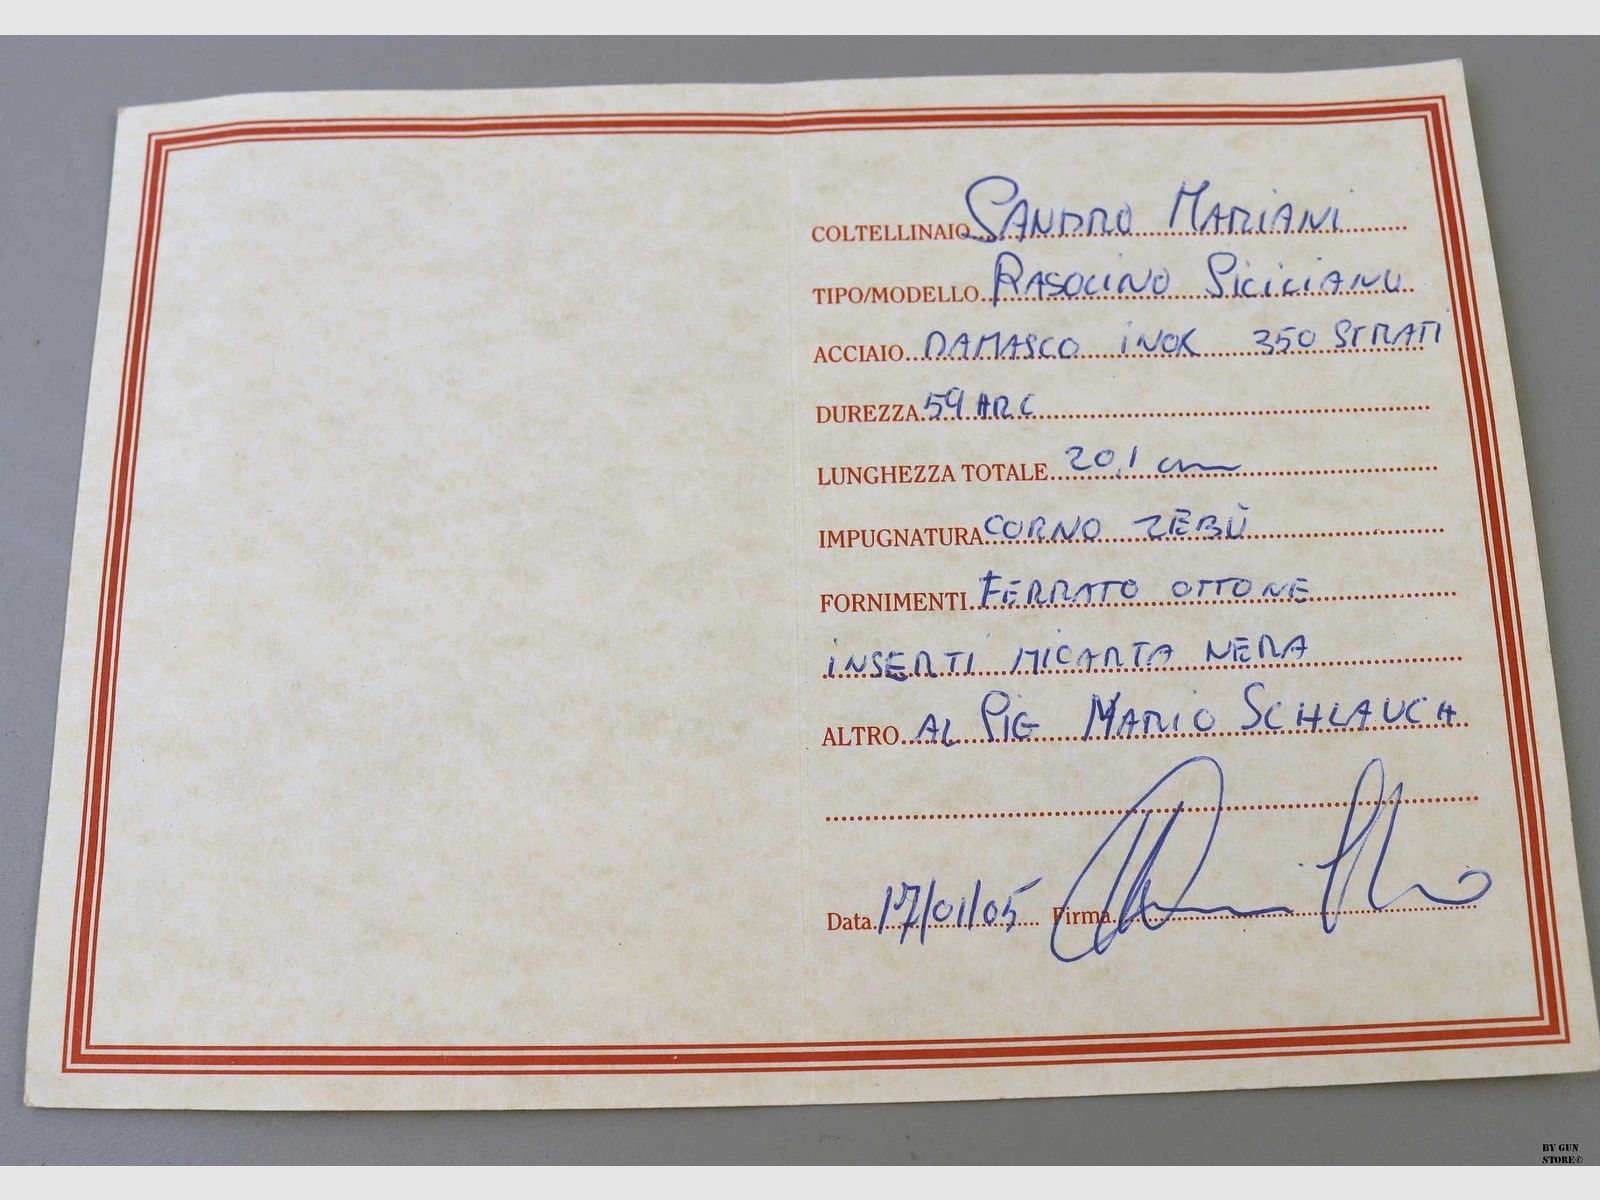 COLTELLINAIO SANDRO MARIANI
TIPO/MODELLO RASOLINO SICILIANO
ACCIAIO DAMASCO INOX 350 STRATI
DUREZZA 59 HRC
LUNGHEZZA TOTALE 20,1 cm
IMPUGNATURA CORNO ZEBÙ
FORNIMENTI FERRATO OTTONE
INSERTI MICARTA NERA
ALTRO AL PIG MARIO SCHLAUCH
Data 17/01/05 Firma
BY GUN
STORE©